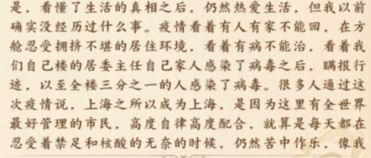 是，看懂了生活的真相之后，仍然热爱生活，但我以前
确实没经历过什么事。疫情看着有人有家不能回，在方
舱忍受拥挤不堪的居住环境，看着有病不能治，看着我
们自己楼的居委主任自己家人感染了病毒之后，瞒报行
迹，以至全楼三分之一的人感染了病毒。很多人通过这
次疫情说，上海之所以成为上海，是因为这里有全世界
最好管理的市民，高度自律高度配合，就算是每天都在
忍受着禁足和核酸的无奈的时候，仍然苦中作乐，像我